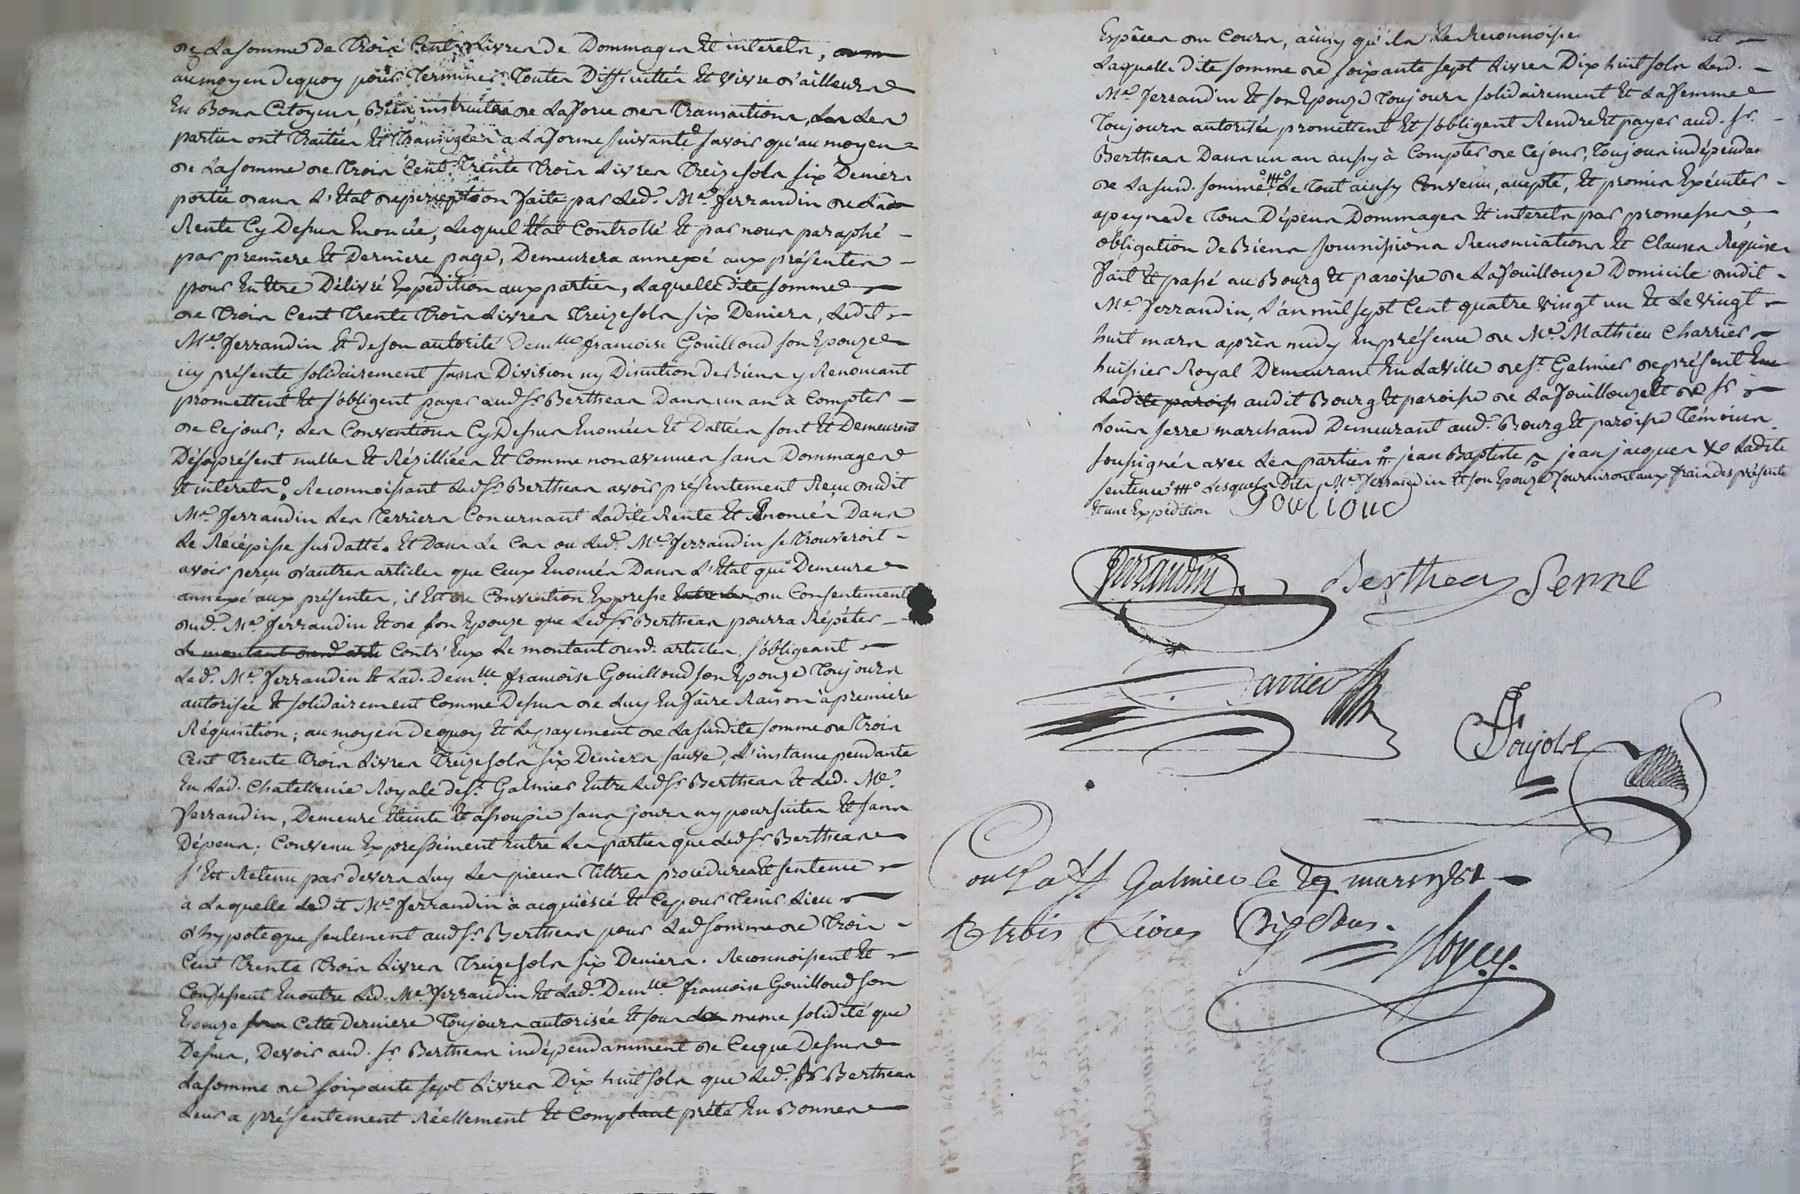 de La somme de Trois Cent Livres de Dommages Et interets,
au moyen de quoy pour Terminer Toutes Difficultés Et vivre d'ailleurs
En Bons Citoyens, Bien instruits de La force des Transactions, Les
parties ont Traitées Et Transigées à La forme suivante savoir qu'au moyen
de La somme de Trois Cent Trente Trois Livres Treize sols six Deniers
portée dans L'Etat de perception faite par Led. Me. ferrandin de Lad
Rente Cy Dessus Enoncée, Lequel Etat Controllé Et par nous paraphé
par premiere Et Derniere page, Demeurera annexé aux présentes
pour En Etre Délivré Expédition aux parties, Laquelle dite somme
de Trois Cent Trente Trois Livres Treize sols six Deniers, Ledit
Me. ferrandin Et de son autorité Demlle francoise Gouilloud son Epouze
icy présente solidairement sans Division ny Discution de Biens y Renoncant
promettent Et s'obligent payer aud. Sr. Bertheas Dans un an à Compter
de Ce jour; Les Conventions Cy Dessus Enoncées Et Dattées sont Et Demeurent
Dès à présent nulles Et Résilliées Et Comme non avenues sans Dommages
Et interets; Reconnoissant Led. Sr. Bertheas avoir présentement Reçu dudit
Me. ferrandin Les Terriers Concernant Ladite Rente Et Enoncés Dans
Le Récépisse susdatté. Et Dans Le Cas ou Led. Me. ferrandin se Trouveroit
avoir perçu d'autres articles que Ceux Enoncés Dans L'Etat qui Demeure
annexé aux présentes, il Est de Convention Expresse du Consentement
dud. Me. ferrandin Et de son Epouze que Led. Sr. Bertheas pourra Répéter
Le montant dud. arti Contr'Eux Le montant dud. articles, s'obligeant
Led. Me. ferrandin Et Lad. Demlle francoise Gouilloud son Epouze Toujours
autorisée Et solidairement Comme Dessus de Luy En faire Raison à premiere
Réquisition; au moyen de quoy Et Le payement de La susdite somme de Trois
Cent Trente Trois Livres Treize sols six Deniers sauve, L'instance pendante
En Lad. Chatellenie Royale de St. Galmier Entre Led. Sr. Bertheas Et Led. Me.
ferrandin, Demeure Eteinte Et assoupie sans jours ny poursuites Et sans
Dépens; Convenu Expressément Entre Les parties que Led. Sr. Bertheas
s'Est Retenu par devers Luy Les pieces Titres procédures Et sentence
à Laquelle Ledit Me. ferrandin à acquiescé Et Ce pour Tenir Lieu
d'hypoteque seulement aud. Sr. Bertheas pour Lad. somme de Trois
Cent Trente Trois Livres Treize sols six Deniers. Reconnoissent Et
Confessent En outre Led. Me. ferrandin Et Lad. Demlle francoise Gouilloud son
Epouze Cette Derniere Toujours autorisée Et sous La meme solidité que
Dessus, Devoir aud. Sr. Bertheas indépendamment de Ce que Dessus
La somme de soixante sept Livres Dix huit sols que Led. Sr. Bertheas
Leur a présentement Réellement Et Comptant prêté En Bonnes
Espèces du Cours, ainsy qu'ils Le Reconnoisse
Laquelle dite somme de soixante sept Livres Dix huit sols Led.
Me. ferrandin Et son Epouze Toujours solidairement Et La femme
Toujours autorisée promettent Et s'obligent Rendre Et payer aud. Sr.
Bertheas Dans un an aussy à Compter de Ce jour, Toujours indépendam
de La susd. somme Le Tout ainsy Convenu, accepté, Et promis Exécuter
à peyne de Tous Dépens Dommages Et interets par promesses
obligation de Biens soumissions Renonciations Et Clauses Requises
fait Et passé au Bourg Et paroisse de La fouillouze Domicile dudit
Me. ferrandin, L'an mil sept Cent quatre vingt un Et Le vingt
huit mars après midy En présence de Me. Mathieu Charrier
huissier Royal Demeurant En La Ville de St. Galmier de présent En
Ladite paroisse audit Bourg Et paroisse de La fouillouze Et de Sr.
Louis serre marchand Demeurant aud. Bourg Et paroisse Témoins
soussignés avec Les parties jean Baptiste jean jacques Ladite
sentence Lesquels Dits Me. ferrandin Et son Epouze fourniront aux frais des présentes
Et une Expédition Gouilloud
ferrandin Bertheas Serre
Charrier
Poujols
Conle a St. Galmier le 29 mars 1781
R trois Livres Dix Sous.